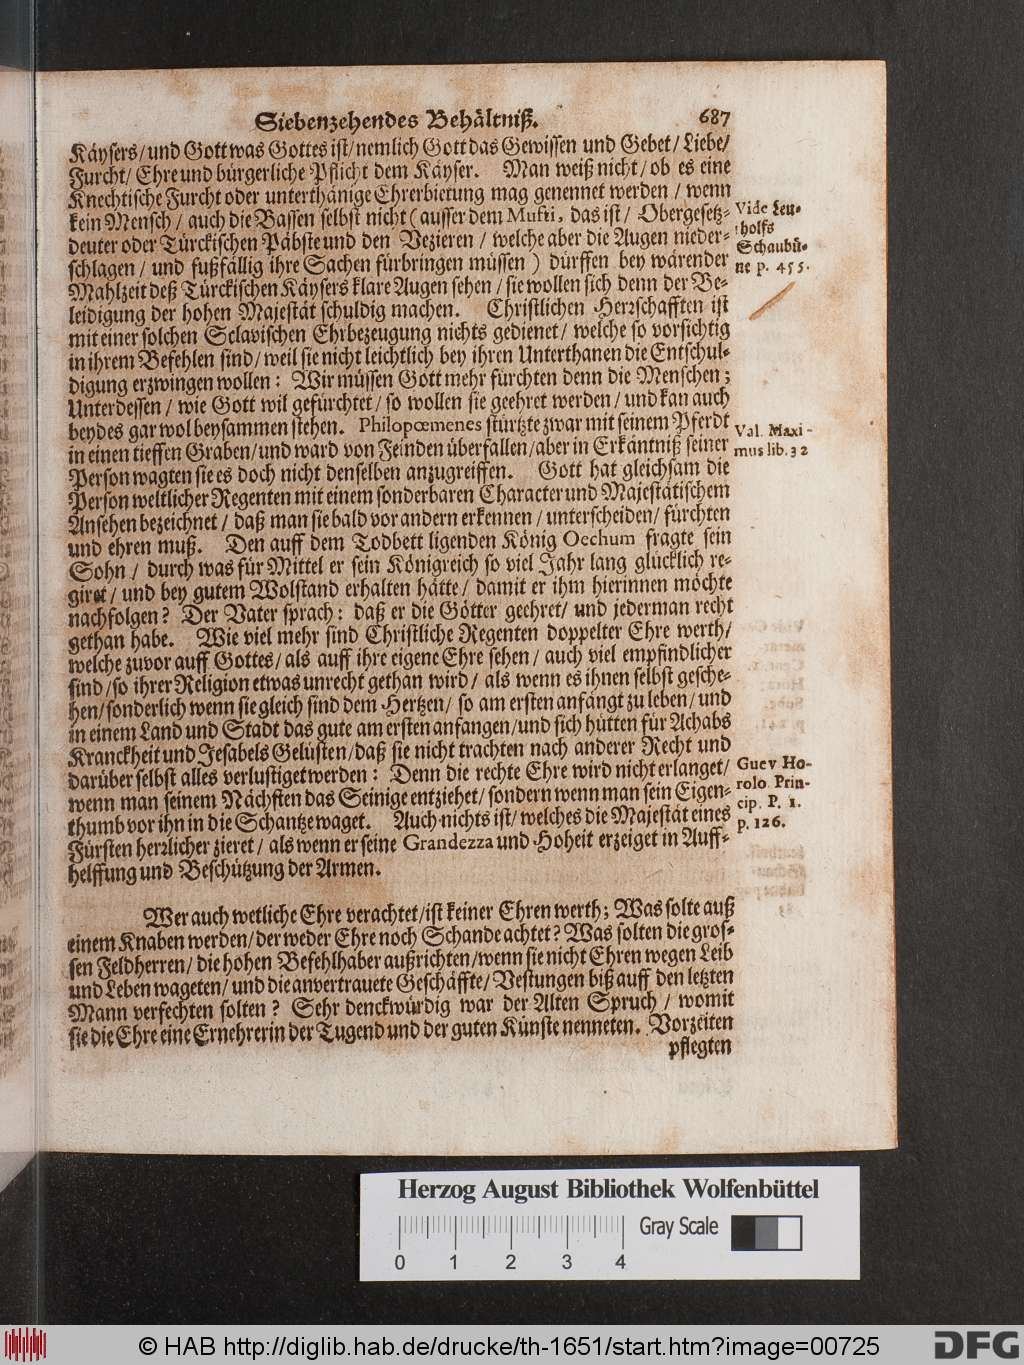 Siebenzehendes Behältniß. 687
Käysers/ und Gott was Gottes ist/ nemlich Gott das Gewissen und Gebet/ Liebe/
Furcht/ Ehre und bürgerliche Pflicht dem Käyser. Man weiß nicht/ ob es eine
Knechtische Furcht oder unterthänige Ehrerbietung mag genennet werden/ wenn
kein Mensch/ auch die Bassen selbst nicht (ausser dem Mufti, das ist/ Obergesetz-
deuter oder Türckischen Päbste und den Vezieren/ welche aber die Augen nieder-
schlagen/ und fußfällig ihre Sachen fürbringen müssen) dürffen bey wärender
Mahlzeit deß Türckischen Käysers klare Augen sehen/ sie wollen sich denn der Be-
leidigung der hohen Majestät schuldig machen. Christlichen Herrschafften ist
mit einer solchen Sclavischen Ehrbezeugung nichts gedienet/ welche so vorsichtig
in ihrem Befehlen sind/ weil sie nicht leichtlich bey ihren Unterthanen die Entschul-
digung erzwingen wollen: Wir müssen Gott mehr fürchten denn die Menschen;
Unterdessen/ wie Gott wil gefürchtet/ so wollen sie geehret werden/ und kan auch
beydes gar wol beysammen stehen. Philopœmenes stürtzte zwar mit seinem Pferdt
in einen tieffen Graben/ und ward von Feinden überfallen/ aber in Erkäntniß seiner
Person wagten sie es doch nicht denselben anzugreiffen. Gott hat gleichsam die
Person weltlicher Regenten mit einem sonderbaren Character und Majestätischem
Ansehen bezeichnet/ daß man sie bald vor andern erkennen/ unterscheiden/ fürchten
und ehren muß. Den auff dem Todbett ligenden König Occhum fragte sein
Sohn/ durch was für Mittel er sein Königreich so viel Jahr lang glücklich re-
giret/ und bey gutem Wolstand erhalten hätte/ damit er ihm hierinnen möchte
nachfolgen? Der Vater sprach: daß er die Götter geehret/ und jederman recht
gethan habe. Wie viel mehr sind Christliche Regenten doppelter Ehre werth/
welche zuvor auff Gottes/ als auff ihre eigene Ehre sehen/ auch viel empfindlicher
sind/ so ihrer Religion etwas unrecht gethan wird/ als wenn es ihnen selbst gesche-
hen/ sonderlich wenn sie gleich sind dem Hertzen/ so am ersten anfängt zu leben/ und
in einem Land und Stadt das gute am ersten anfangen/ und sich hütten für Achabs
Kranckheit und Jesabels Gelüsten/ daß sie nicht trachten nach anderer Recht und
darüber selbst alles verlustiget werden: Denn die rechte Ehre wird nicht erlanget/
wenn man seinem Nächsten das Seinige entziehet/ sondern wenn man sein Eigen-
thumb vor ihn in die Schantze waget. Auch nichts ist/ welches die Majestät eines
Fürsten herrlicher zieret/ als wenn er seine Grandezza und Hoheit erzeiget in Auff-
helffung und Beschützung der Armen.
Wer auch wetliche Ehre verachtet/ ist keiner Ehren werth; Was solte auß
einem Knaben werden/ der weder Ehre noch Schande achtet? Was solten die gros-
sen Feldherren/ die hohen Befehlhaber außrichten/ wenn sie nicht Ehren wegen Leib
und Leben wageten/ und die anvertrauete Geschäffte/ Vestungen biß auff den letzten
Mann verfechten solten? Sehr denckwürdig war der Alten Spruch/ womit
sie die Ehre eine Ernehrerin der Tugend und der guten Künste nenneten. Vorzeiten
pflegten
Vide Leu-
tholfs
Schaubü-
ne p. 455.
Val. Maxi-
mus lib. 32
Guev Ho-
rolo Prin-
cip. P. 1.
p. 126.
Herzog August Bibliothek Wolfenbüttel
Gray Scale
0 1 2 3 4
© HAB http://diglib.hab.de/drucke/th-1651/start.htm?image=00725
DFG